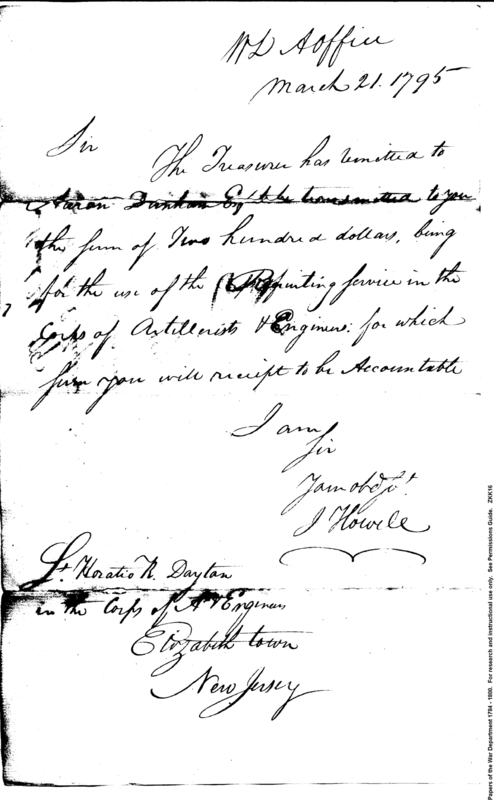 WD AOffice
March 21. 1795
Sir
The Treasurer has remitted to
Aaron Dunham Esqr to be transmitted to you
the sum of Two hundred dollars, being
for the use of the Recruiting service in the
Corps of Artillerists & Engineers. for which
sum you will receipt to be Accountable
I am
Sir
Your obd St.
J Howell
Lt. Horatio R. Dayton
in the Corps of A & Engineers
Elizabeth town
New Jersey
Papers of the War Department 1784 - 1800. For research and instructional use only. See Permissions Guide. ZKK16